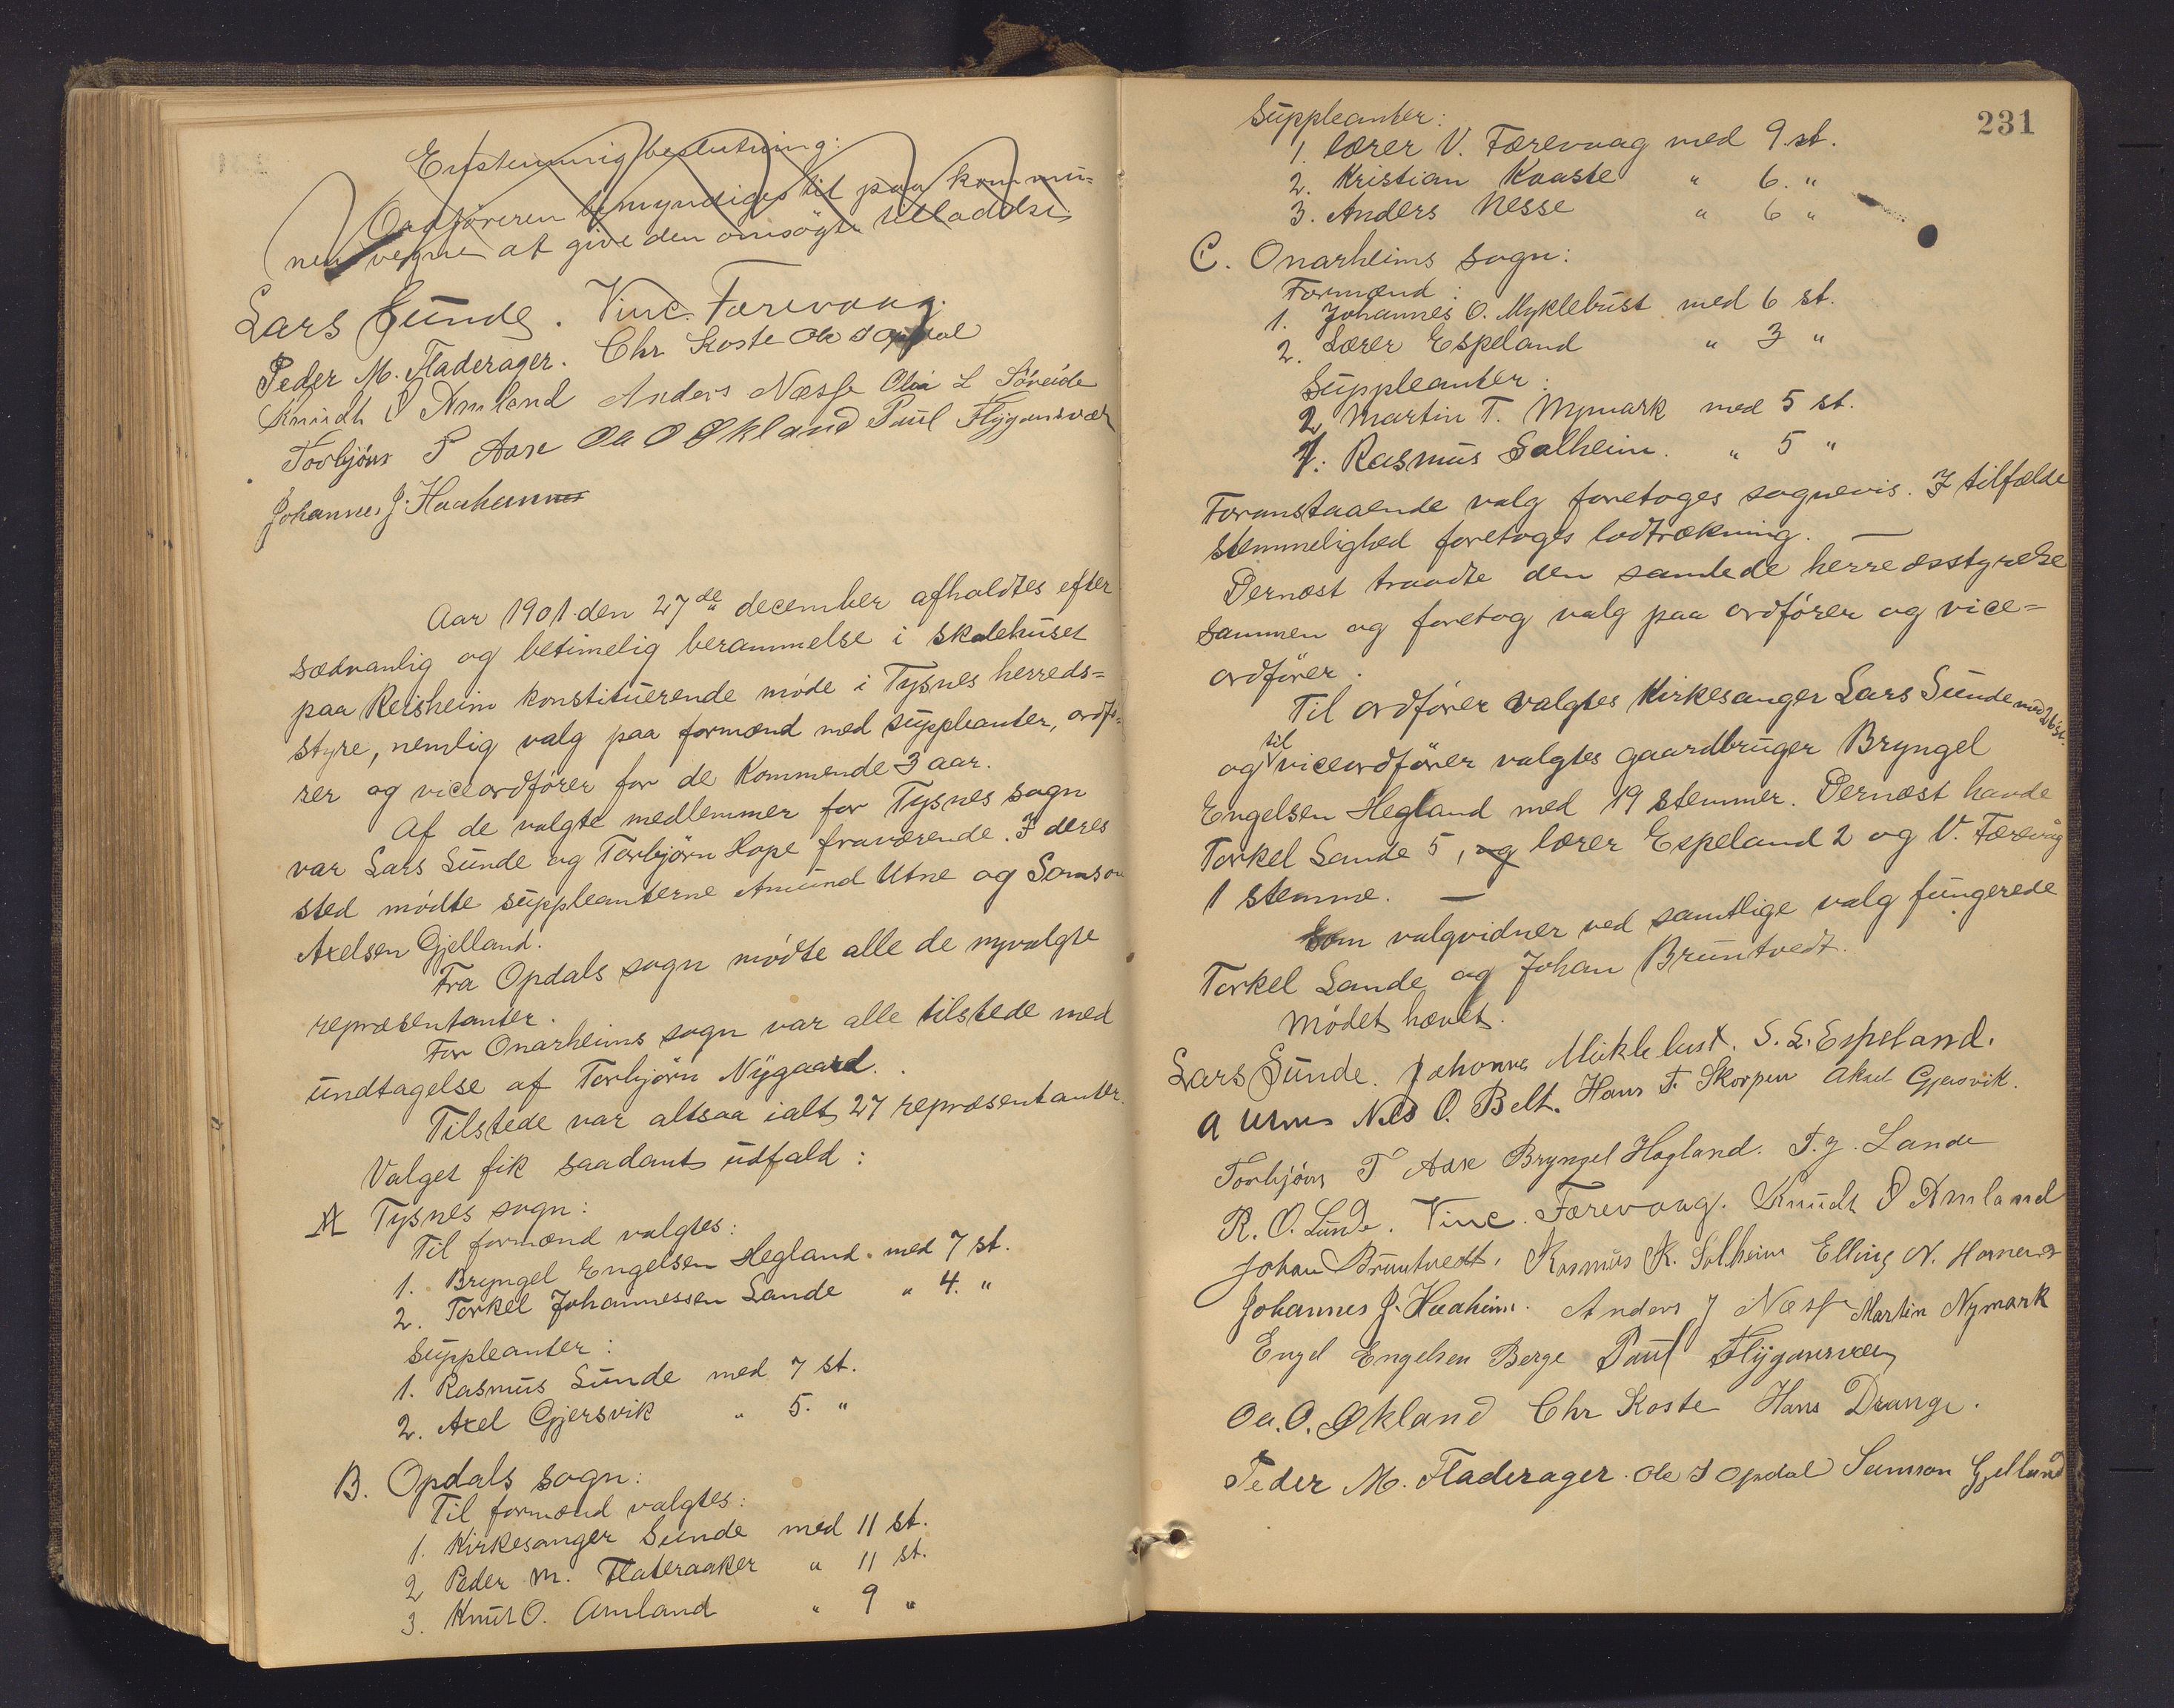 Enstemmig beslutning:
Ordføreren bemyndiges til paa kommu-
nens vegne at give den omsøgte tilladelse
Lars Sunde. Vinc. Færevaag.
Peder M. Fladerager. Chr Koste Ole J Opdal
Knudt O Amland Anders Næsse Olai L Søreide
Torbjørn T Aase Oa O Økland Paul Flygansvær
Johannes J. Haaheim
Aar 1901 den 27de december afholdtes efter
sædvanlig og betimelig berammelse i skolehuset
paa Reisheim konstituerende møde i Tysnes herreds=
styre, nemlig valg paa formænd med suppleanter, ordfø=
rer og viceordfører for de kommende 3 aar.
Af de valgte medlemmer for Tysnes sogn
var Lars Sunde og Torbjørn Hope fraværende. I deres
sted mødte suppleanterne Amund Utne og Samson
Axelsen Gjelland.
Fra Opdals sogn mødte alle de nyvalgte
repræsentanter.
For Onarheims sogn var alle tilstede med
undtagelse af Torbjørn Nygaard.
Tilstede var altsaa ialt 27 repræsentanter.
Valget fik saadant udfald:
A Tysnes sogn:
Til formænd valgtes:
1. Bryngel Engelsen Hegland. med 7 st.
2. Torkel Johannessen Lande " 4. "
Suppleanter:
1. Rasmus Sunde med 7 st.
2. Axel Gjersvik " 5. "
B. Opdals sogn:
Til formænd valgtes:
1. Kirkesanger Sunde med 11 st.
2 Peder M. Flateraaker " 11 st.
3. Knut O. Amland " 9 "
231
Suppleanter:
1. lærer V. Færevaag med 9 st.
2. Kristian Kaaste " 6. "
3. Anders Nesse " 6 "
C. Onarheims sogn:
Formænd:
1. Johannes O. Myklebust med 6 st.
2. Lærer Espeland " 3 "
Suppleanter:
2 Martin T. Nymark med 5 st.
1. Rasmus Solheim. " 5 "
Foranstaaende valg foretoges sognevis. I tilfælde
stemmelighed foretoges lodtrækning.
Dernæst traadte den samlede herredsstyrelse
sammen og foretog valg paa ordfører og vice=
ordfører.
Til ordfører valgtes Kirkesanger Lars Sunde med 26 st.
og til viceordfører valgtes gaardbruger Bryngel
Engelsen Hegland med 19 stemmer. Dernæst havde
Torkel Lande 5, og lærer Espeland 2 og V. Færevåg
1 stemme.
Som valgvidner ved samtlige valg fungerede
Torkel Lande og Johan Bruntvedt.
Mødet hævet.
Lars Sunde. Johannes Miklebust. S. L. Espeland.
A Utne Nils O. Belt. Hans T. Skorpen Aksel Gjersvik.
Torbjørn T Aase Bryngel Hegland. T. J. Lande
R. O. Sunde. Vinc. Færevaag. Knudt O Amland
Johan Bruntvedt. Rasmus K. Solheim Elling N. Hornenes
Johannes J. Haaheim. Anders J Næsse Martin Nymark
Engel Engelsen Berge Paul Flygansvær
Oa. O. Økland Chr Koste Hans Drange.
Peder M. Fladerager. Ole J Opdal Samson Gjelland